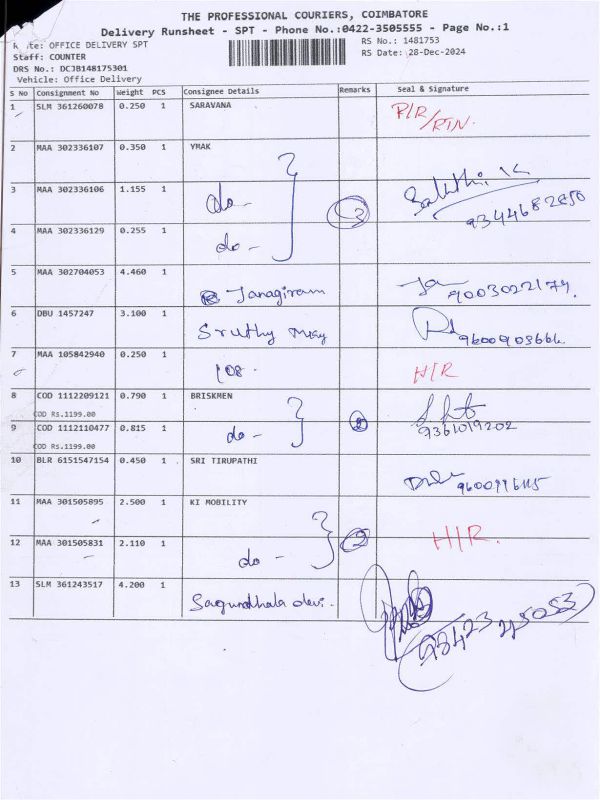 THE PROFESSIONAL COURIERS, COIMBATORE
Delivery Runsheet - SPT - Phone No.:0422-3505555 - Page No.:1
Route: OFFICE DELIVERY SPT
RS No.: 1481753
Staff: COUNTER
RS Date: 28-Dec-2024
DRS No.: DCJB148175301
Vehicle: Office Delivery
S No Consignment No Weight PCS Consignee Details Remarks Seal & Signature
1 SLM 361260078 0.250 1 SARAVANA
R/R/RTN.
2 MAA 302336107 0.350 1 YMAK
3 MAA 302336106 1.155 1
do- 3
9344682850
4 MAA 302336129 0.255 1
do -
5 MAA 302704053 4.460 1
Janagiram 9003022179.
6 DBU 1457247 3.100 1
Sruthy 9600903666
7 MAA 105842940 0.250 1
108. H/R
8 COD 1112209121 0.790 1 BRISKMEN
COD Rs.1199.00 2
9 COD 1112110477 0.815 1
do - 9361019202
COD Rs.1199.00
10 BLR 6151547154 0.450 1 SRI TIRUPATHI
11 MAA 301505895 2.500 1 KI MOBILITY
H/R.
12 MAA 301505831 2.110 1
do - 2
13 SLM 361243517 4.200 1
Sagundhala devi.